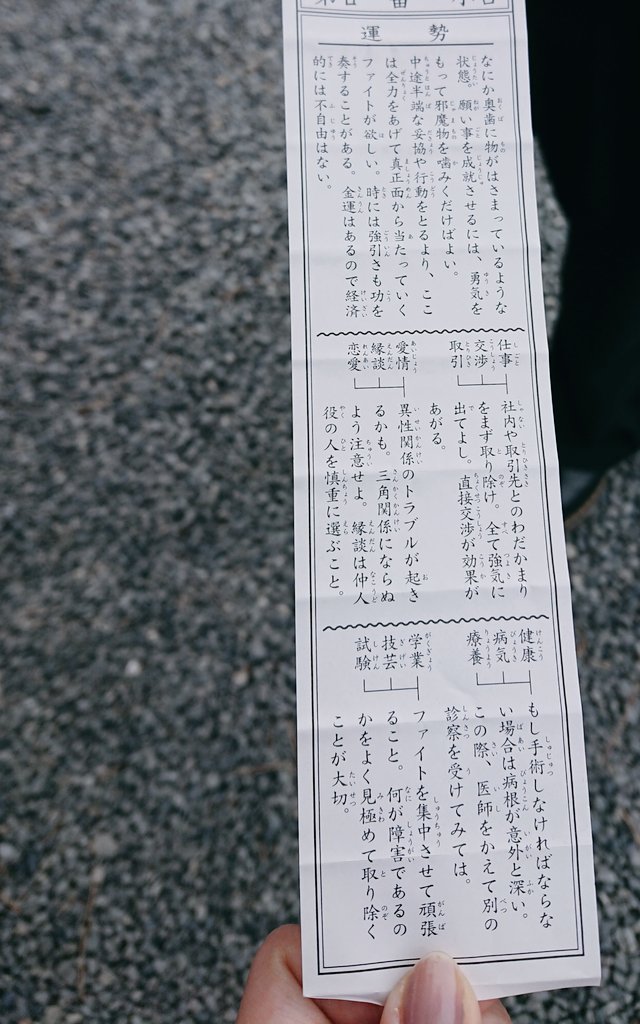 運勢
なにか奥歯に物がはさまっているような
状態。願い事を成就させるには、勇気を
もって邪魔物を噛みくだけばよい。
中途半端な妥協や行動をとるより、ここ
は全力をあげて真正面から当たっていく
ファイトが欲しい。時には強引さも功を
奏することがある。金運はあるので経済
的には不自由はない。
仕事
交渉
取引
社内や取引先とのわだかまり
をまず取り除け。全て強気に
出てよし。直接交渉が効果が
あがる。
愛情
縁談
恋愛
異性関係のトラブルが起き
るかも。三角関係にならぬ
よう注意せよ。縁談は仲人
役の人を慎重に選ぶこと。
健康
病気
療養
もし手術しなければならな
い場合は病根が意外と深い。
この際、医師をかえて別の
診察を受けてみては。
学業
技芸
試験
ファイトを集中させて頑張
ること。何が障害であるの
かをよく見極めて取り除く
ことが大切。